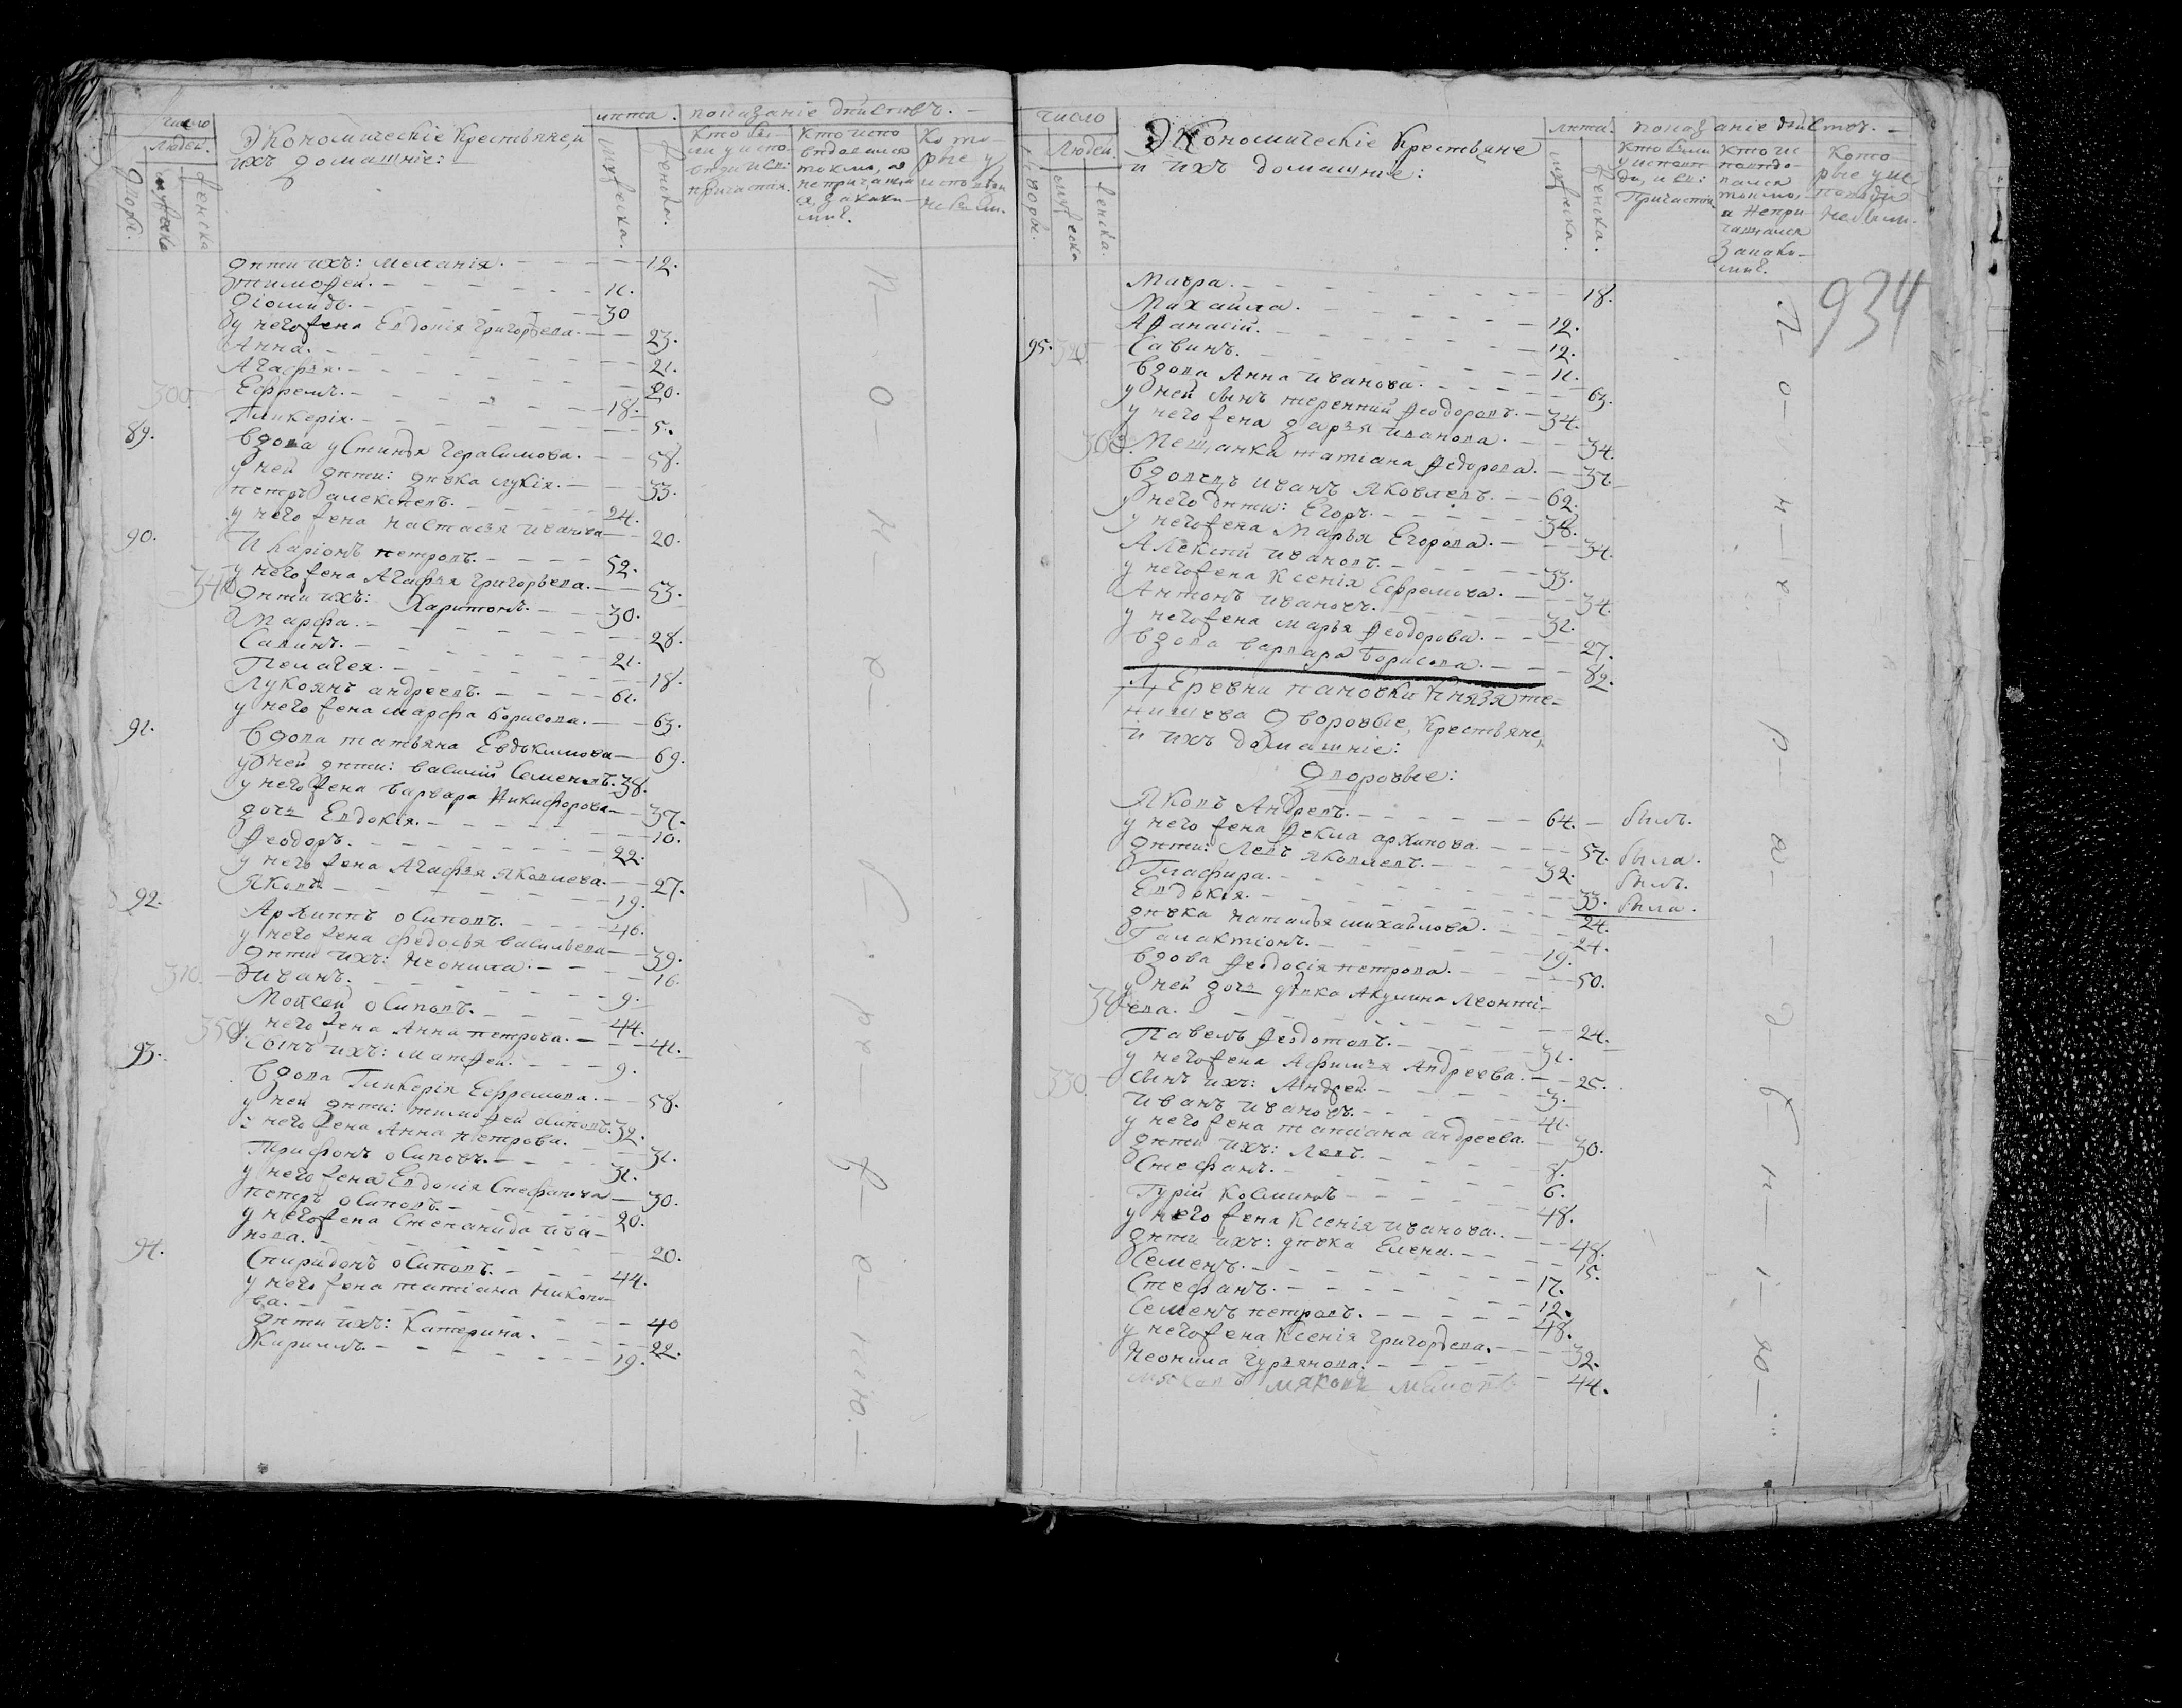 число
Людей.
дворы.
мужеска
женска
Экономическіе крестьяне, и
ихъ домашніе:
лѣта.
мужеска.
женска.
показаніе дѣйствъ. —
кто бы
ли у испо
вѣди и св:
причастія.
кто испо
вѣдался
токмо, а
не причаща
ся, за каки
ми в.
кото
рые у
исповѣди
не были.
дѣти ихъ: Меланія. 12.
Тимоѳей. 11.
Діомидъ. 30
у него жена Евдокія Григорьева. 23.
Анна. 21.
Агафья. 20.
300 Ефремъ. 18.
Гликерія. 5.
89. вдова Устинья Герасимова. 58.
у ней дѣти: дѣвка Лукія. 33.
петръ алексѣевъ. 24.
у него жена настасья иванова 20.
90. Иларіонъ петровъ. 52.
у него жена Агафья Григорьева. 53.
340 дѣти ихъ: Харитонъ. 30.
Марфа. 28.
Савинъ. 21.
Пелагея. 18.
Лукоянъ андреевъ. 61.
у него жена марфа борисова. 63.
91. вдова татьяна Евдокимова 69.
у ней дѣти: василий Семеновъ. 38.
у него жена варвара Никифорова 37.
дочь Евдокія. 10.
Ѳеодоръ. 22.
у него жена Агафья Яковлева. 27.
Яковъ 19.
92. Архиппъ осиповъ. 46.
у него жена федосья васильева 39.
дѣти ихъ: Неонила. 16.
310. иванъ. 9.
Мойсей осиповъ. 44.
350 у него жена Анна петрова. 41.
сынъ ихъ: Матѳей. 9.
93. вдова Гликерія Ефремова. 58.
у ней дѣти: тимоѳей осиповъ. 32.
у него жена Анна петрова. 31.
Трифонъ осиповъ. 31.
у него жена Евдокія Стефанова 30.
петръ осиповъ. 20.
у него жена Степанида ива
нова. 20.
94. Спиридонъ осиповъ. 44.
у него жена татіана Никоно
ва. 40
дѣти ихъ: Катерина. 22.
Кирилъ. 19.
число
Людей.
дворы.
мужеска
женска.
Экономическіе крестьяне
и ихъ домашніе:
лѣта.
мужеска.
женска.
показаніе дѣйствъ. —
кто были
у испове
ди, и св:
Причастія
кто ис
повѣдо
вался
токмо,
а непри
чащался
за како
ми в.
Кото
рые у ис
повѣди
не были.
934
Мавра. 18.
Михайла. 12.
Аѳанасій. 12.
95. Савинъ. 11.
вдова Анна иванова. 63.
у ней сынъ терентий Ѳеодоровъ. 34.
у него жена дарья иванова. 34.
Мещанка татіана Ѳедорова. 37.
вдовецъ иванъ Яковлевъ. 62.
у него дѣти: Егоръ. 38.
у него жена Марья Егорова. 34.
Алексѣй ивановъ. 33.
у него жена Ксенія Ефремова. 34.
Антонъ ивановъ. 31.
у него жена марья Ѳеодорова. 27.
вдова варвара борисова. 82.
Деревни пановки князя те-
нишева дворовые, крестьяне,
и ихъ домашніе:
дворовые:
Яковъ Андреевъ. 64. былъ.
у него жена Ѳекла архипова. 57. была.
дѣти: Левъ яковлевъ. 32. былъ.
Глафира. 33. была.
Евдокія. 24.
дѣвка наталья михаилова. 24.
Галактіонъ. 19.
вдова Ѳеодосія петрова. 50.
у ней дочь дѣвка Акулина Леонтi-
ева. 24.
Павелъ Ѳедотовъ. 31.
у него жена Афимья Андреева. 25.
330 сынъ ихъ: Андрей. 3.
иванъ ивановъ. 41.
у него жена татиана андреева. 30.
дѣти ихъ: Левъ. 8.
Стефанъ. 6.
Гурій косминъ 48.
у него жена Ксенія иванова. 48.
дѣти ихъ: дѣвка Елена. 15.
Семенъ. 17.
Стефанъ. 12.
Семенъ петровъ. 48.
у него жена Ксенія Григорьева. 32.
Неонила Гурьянова. 44.